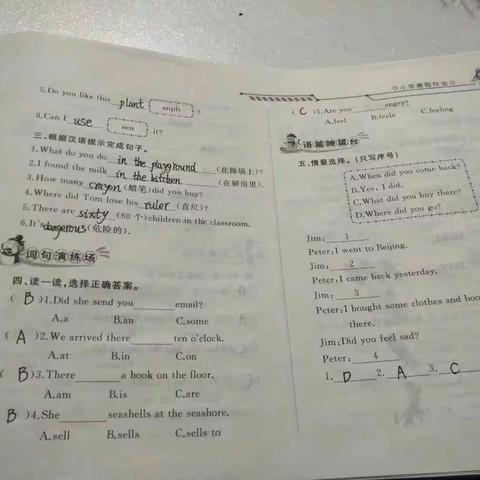 5.Do you like this plant anplt ?
6.Can I use seu it?
三、根据汉语提示完成句子。
1.What do you do in the playground (在操场上)?
2.I found the milk in the kitchen (在厨房里).
3.How many crayon (蜡笔)did you buy?
4.Where did Tom lose his ruler (直尺)?
5.There are sixty (60个)children in the classroom.
6.It's dangerous(危险的).
词句演练场
四、读一读,选择正确答案。
( B )1.Did she send you ____ email?
A.a B.an C.some
( A )2.We arrived there ____ ten o'clock.
A.at B.in C.on
( B )3.There ____ a book on the floor.
A.am B.is C.are
( B )4.She ____ seashells at the seashore.
A.sell B.sells C.sells to
小学寒假作业
( C )5.Are you ____ angry?
A.feel B.feels C.feeling
语篇瞭望台
五、情景选择。(只写序号)
A.When did you come back?
B.Yes, I did.
C.What did you buy there?
D.Where did you go?
Jim: 1
Peter:I went to Beijing.
Jim: 2
Peter:I came back yesterday.
Jim: 3
Peter:I bought some clothes and
there.
Jim:Did you feel sad?
Peter: 4
1. D 2. A 3. C